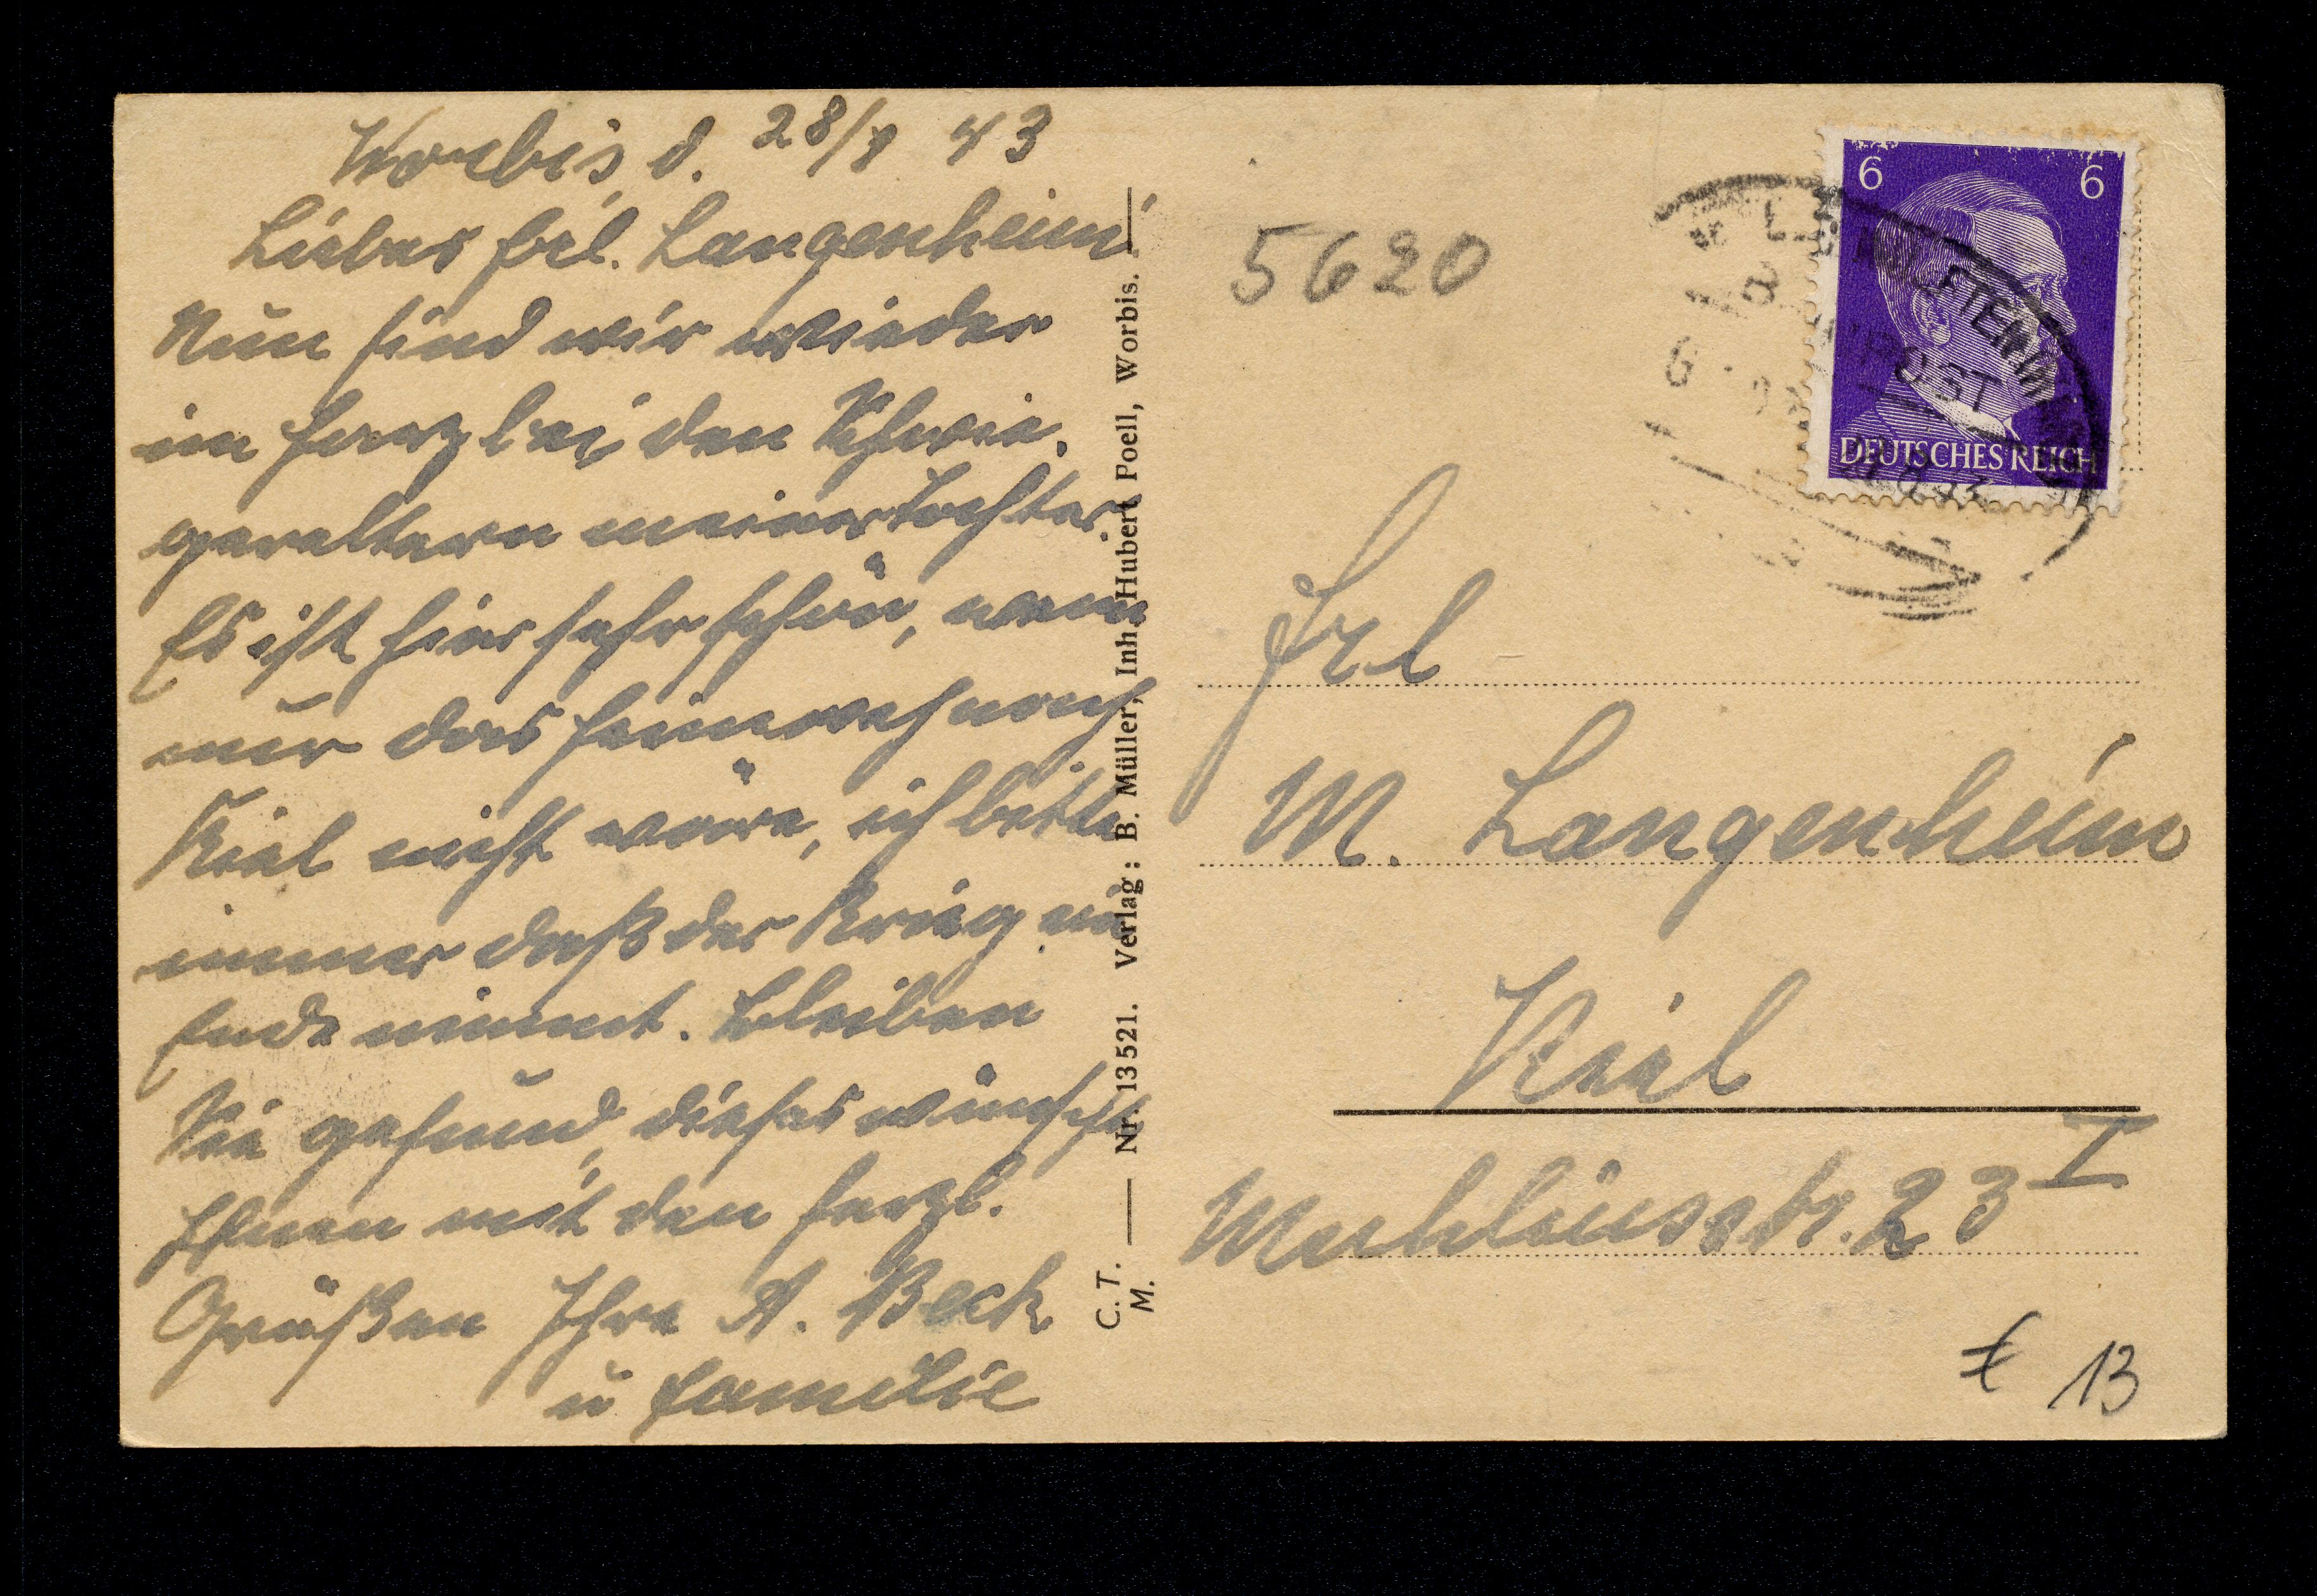 Worbis, d. 28/8 43
Liebes Frl. Langenheim!
Nun sind wir wieder
im Harz bei den Schwie-
gereltern meiner Tochter.
Es ist hier sehr schön, wenn
nur das Heimweh nach
Kiel nicht wäre, ich bitte
immer daß der Krieg ein
Ende nimmt. Bleiben
Sie gesund, dieses wünscht
Ihnen mit den herzl.
Grüßen Ihre A. Beck
u Familie
C. T. M. — Nr. 13521. Verlag: B. Müller, Inh. Hubert Poell, Worbis. —
5620
6 6
DEUTSCHES REICH
POST
Frl
M. Langenheim
Kiel
Muhliusstr. 23 I
€ 13